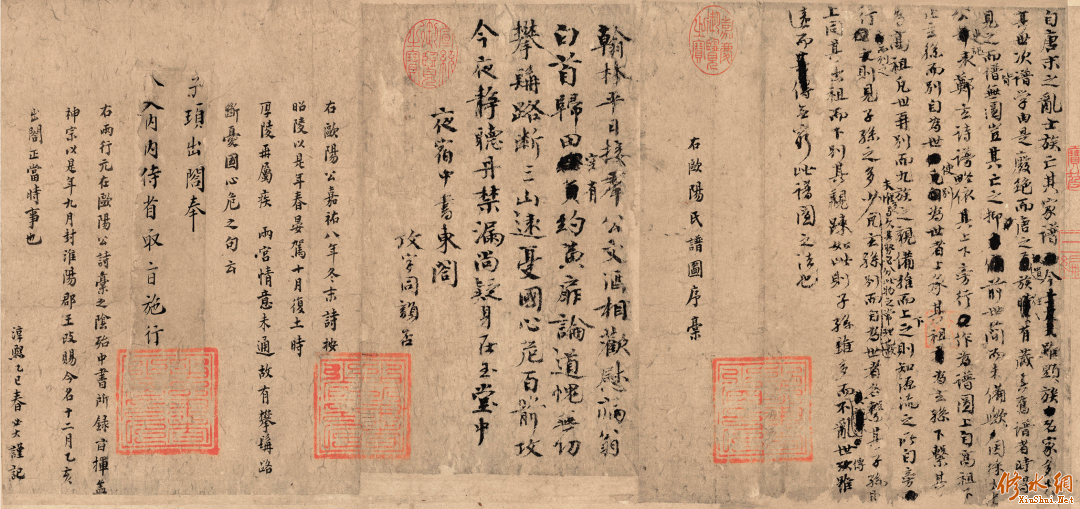 自唐末之亂士族亡其家譜今雖顯族名家多
其世次譜學由是廢絕而唐之遺族有藏其舊譜者時得
見之而譜皆無圖豈其亡之抑前世簡而未備歟因採太史
公史記表鄭玄詩譜略依其上下旁行作為譜圖上自高祖下
止玄孫而別自為世使別為世者上承其祖為玄孫下繫其
為高祖凡世再別而九族之親備推而上下之則知源流之所自旁
行而列之則見子孫之多少夫惟多與久其勢必分此物之常理也凡玄孫別而自為世者各繫其子孫則
上同其出祖而下別其親疎如此則子孫雖多而不亂世傳雖
遠而無窮此譜圖之法也
右歐陽氏譜圖序稾
翰林平日接羣公文酒相歡慰病翁
白首歸田空有約黃扉論道愧無功
攀髯路斷三山遠憂國心危百箭攻
今夜靜聽丹禁漏尚疑身在玉堂中
夜宿中書東閣
攻字同韻否
右歐陽公嘉祐八年冬末詩按
昭陵以是年春晏駕十月復土時
厚陵再屬疾兩宮情意未通故有攀髯路
斷憂國心危之句云
子頊出閤奉
入內內侍省取旨施行
右兩行元在歐陽公詩稾之陰殆中書所錄旨揮蓋
神宗以是年九月封淮陽郡王改賜今名十二月乙亥
出閤正當時事也
淳熙乙巳春必大謹記
修水網
XiuShui.Net